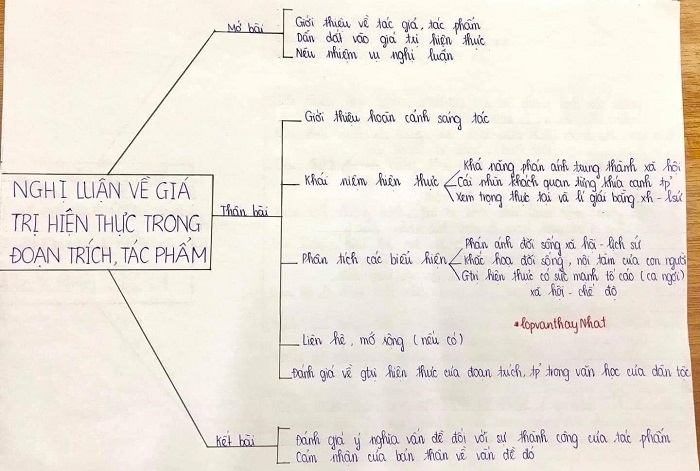 Mở bài
Giới thiệu về tác giả, tác phẩm
Dẫn dắt vào giá trị hiện thực
Nêu nhiệm vụ nghị luận
NGHỊ LUẬN VỀ GIÁ
TRỊ HIỆN THỰC TRONG
ĐOẠN TRÍCH, TÁC PHẨM
Thân bài
Giới thiệu hoàn cảnh sáng tác
Khái niệm hiện thực
Khả năng phản ánh trung thành xã hội
Cái nhìn khách quan từng khía cạnh tp'
Xem trọng thực tại và lí giải bằng xh - lsử
Phân tích các biểu hiện
Phản ánh đời sống xã hội - lịch sử
Khắc họa đời sống, nội tâm của con người
Gtrị hiện thực có sức mạnh tố cáo (ca ngợi)
xã hội - chế độ
*lopvanthayNhat
Liên hệ, mở rộng (nếu có)
Đánh giá về gtrị hiện thực của đoạn trích, tp' trong văn học của dân tộc
Kết bài
Đánh giá ý nghĩa vấn đề đối với sự thành công của tác phẩm
Cảm nhận của bản thân về vấn đề đó